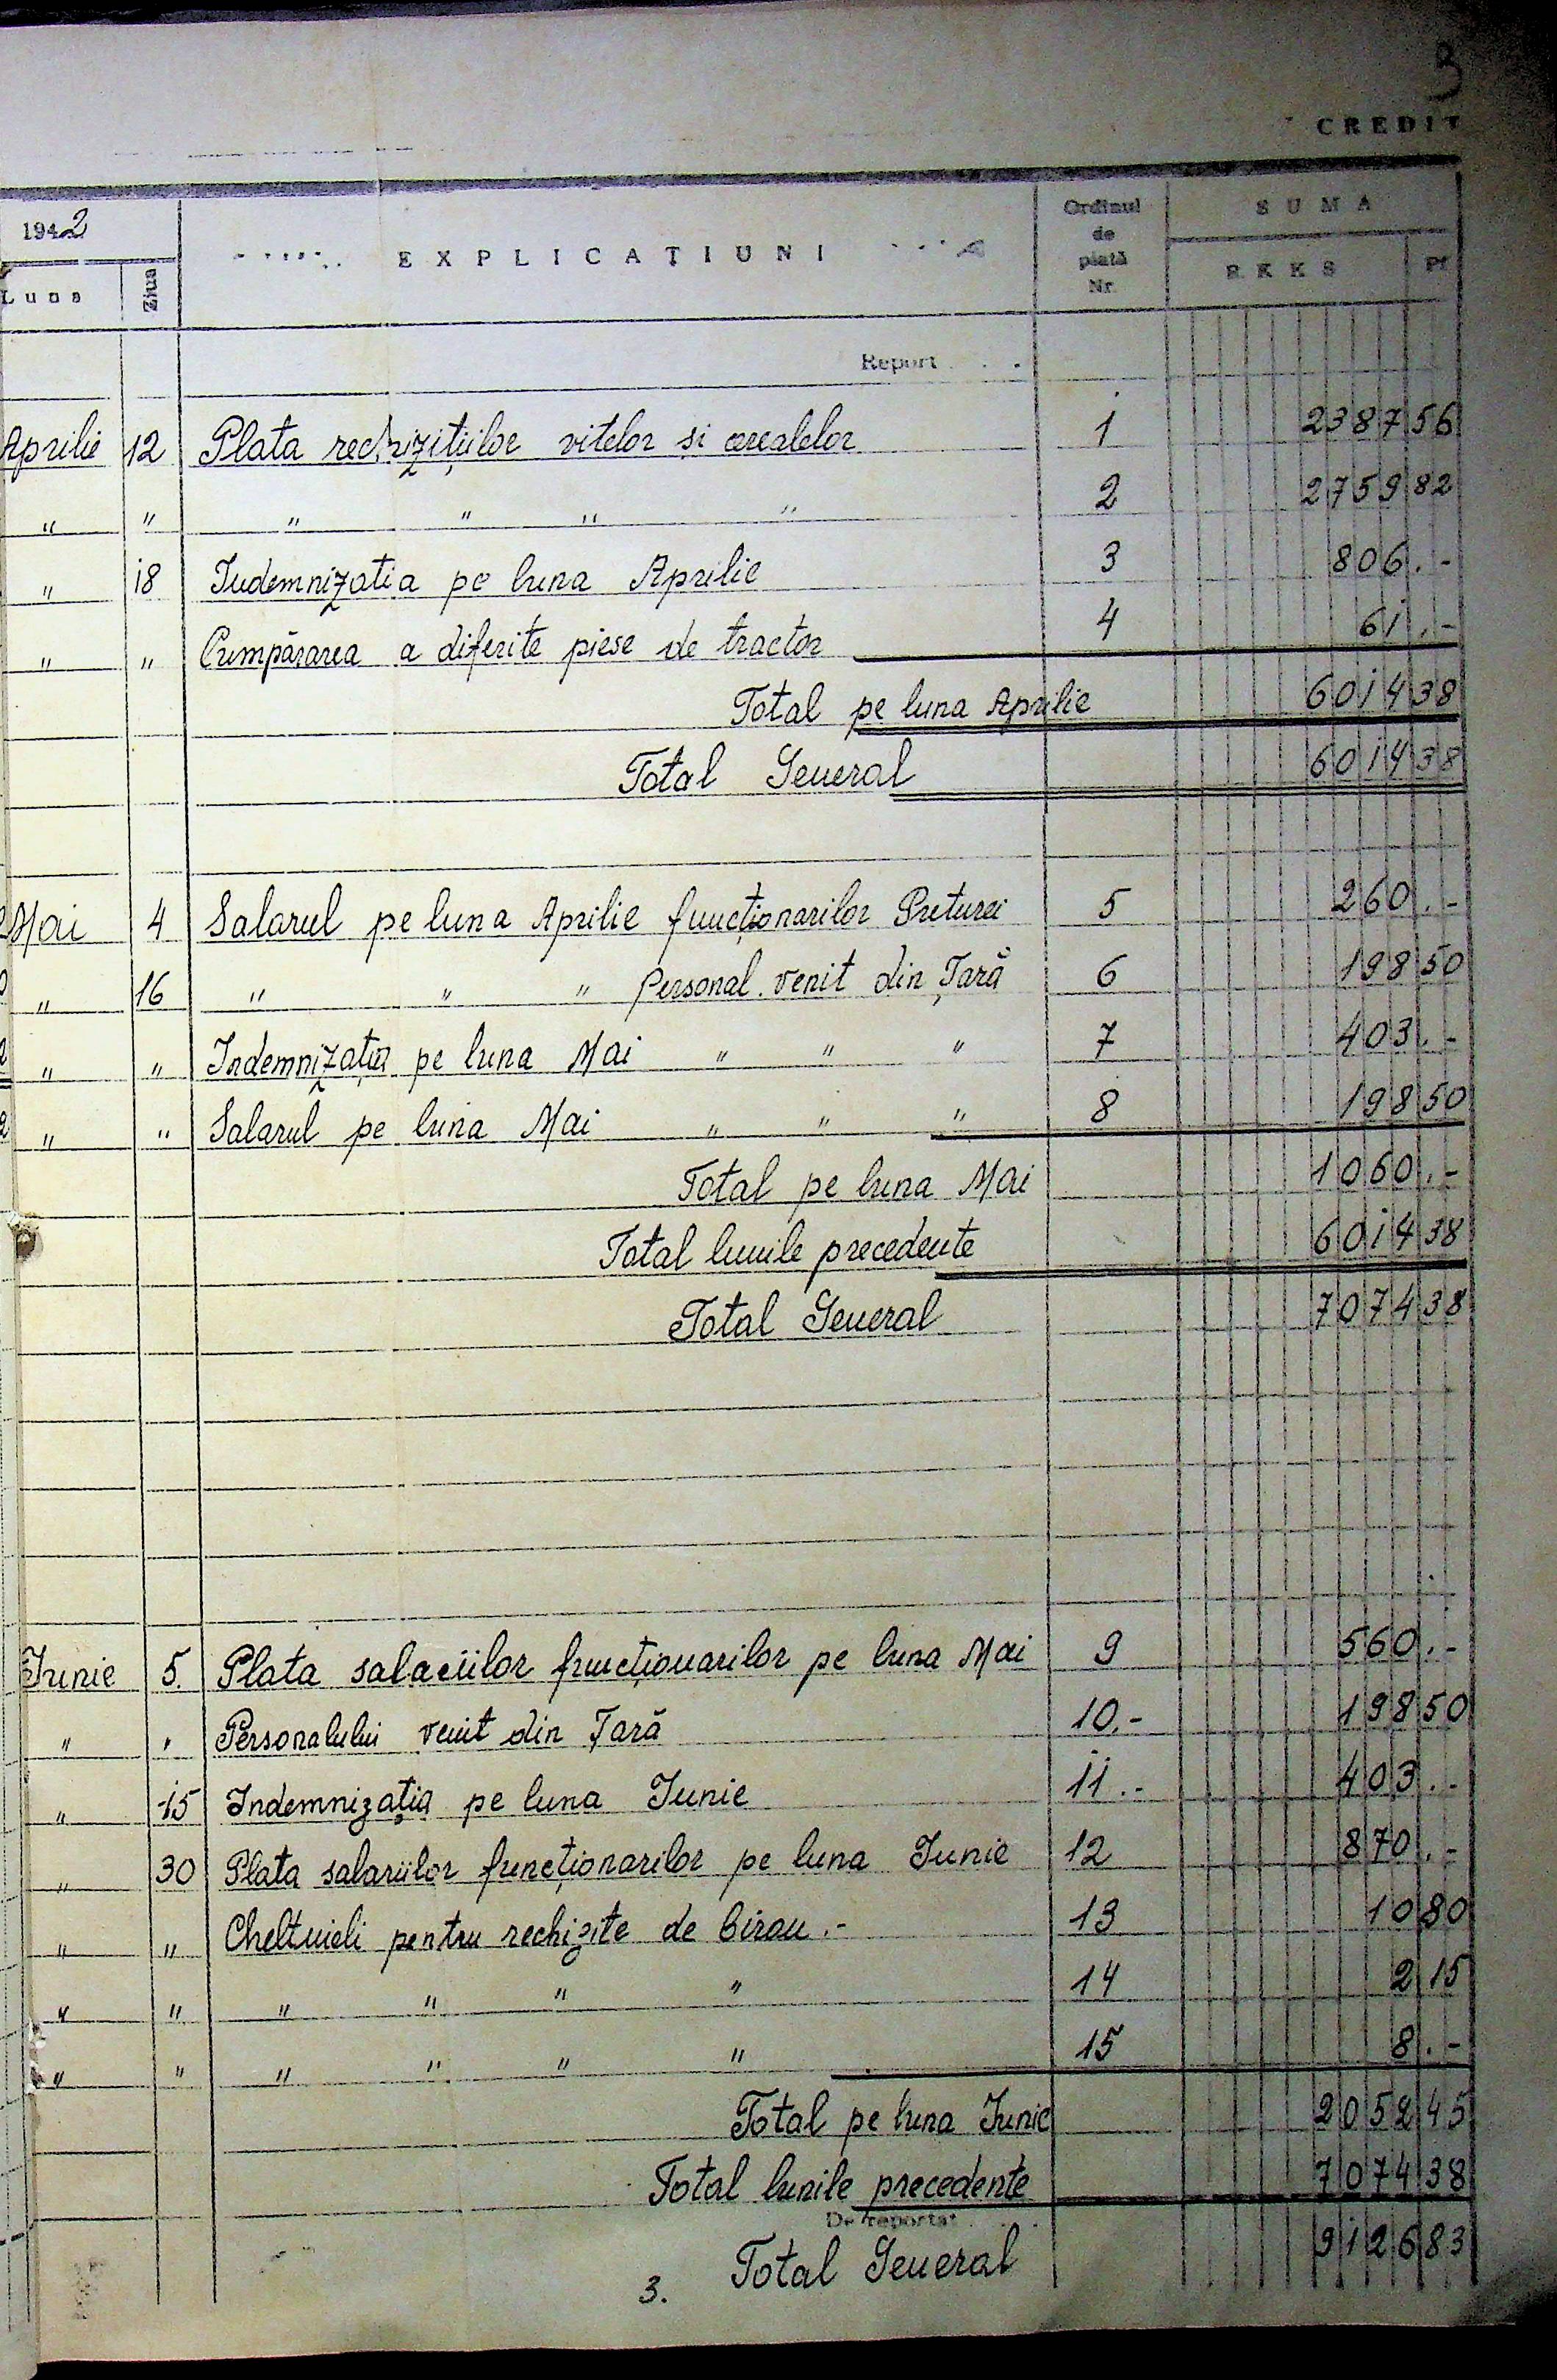 3
CREDIT
1942 EXPLICAȚIUNI Ordinul de plată Nr. SUMA
Luna Ziua RKKS Pf
Report
Aprilie 12 Plata rechizițiilor vitelor și cerealelor 1 2387 56
" " " " " " 2 2759 82
" 18 Indemnizatia pe luna Aprilie 3 806.-
" " Cumpărarea a diferite piese de tractor 4 61.-
Total pe luna Aprilie 6014 38
Total General 6014 38
Mai 4 Salarul pe luna Aprilie funcționarilor Preturei 5 260.-
" 16 " " " Personal venit din Țară 6 198 50
" " Indemnizația pe luna Mai " " " 7 403.-
" " Salarul pe luna Mai " " " 8 198 50
Total pe luna Mai 1060.-
Total lunile precedente 6014 38
Total General 7074 38
Iunie 5. Plata salariilor funcționarilor pe luna Mai 9 560.-
" " Personalului venit din Țară 10.- 198 50
" 15 Indemnizația pe luna Iunie 11.- 403.-
" 30 Plata salariilor funcționarilor pe luna Iunie 12 870.-
" " Cheltuieli pentru rechizite de birou.- 13 10 80
" " " " " " 14 2 15
" " " " " " 15 8.-
Total pe luna Iunie 2052 45
Total lunile precedente 7074 38
De reportat
Total General 9126 83
3.